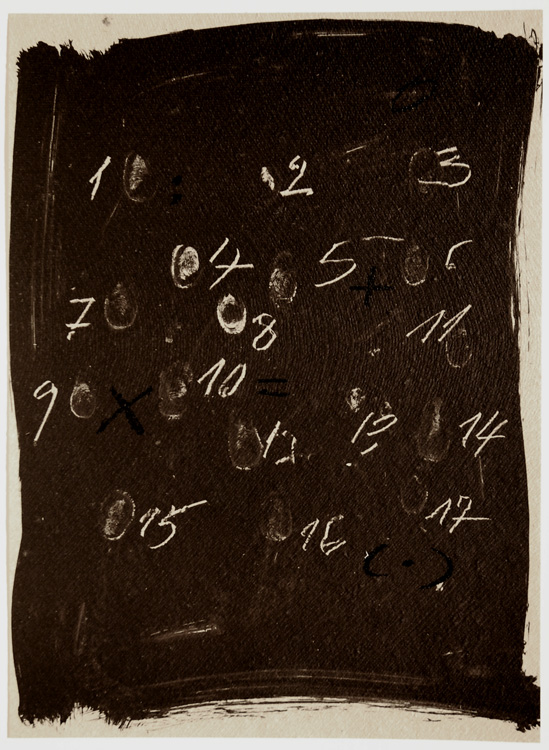 1 : 2 3
4 5 6
+
7 8 11
9 × 10 =
13 12 14
15 16 17
(·)